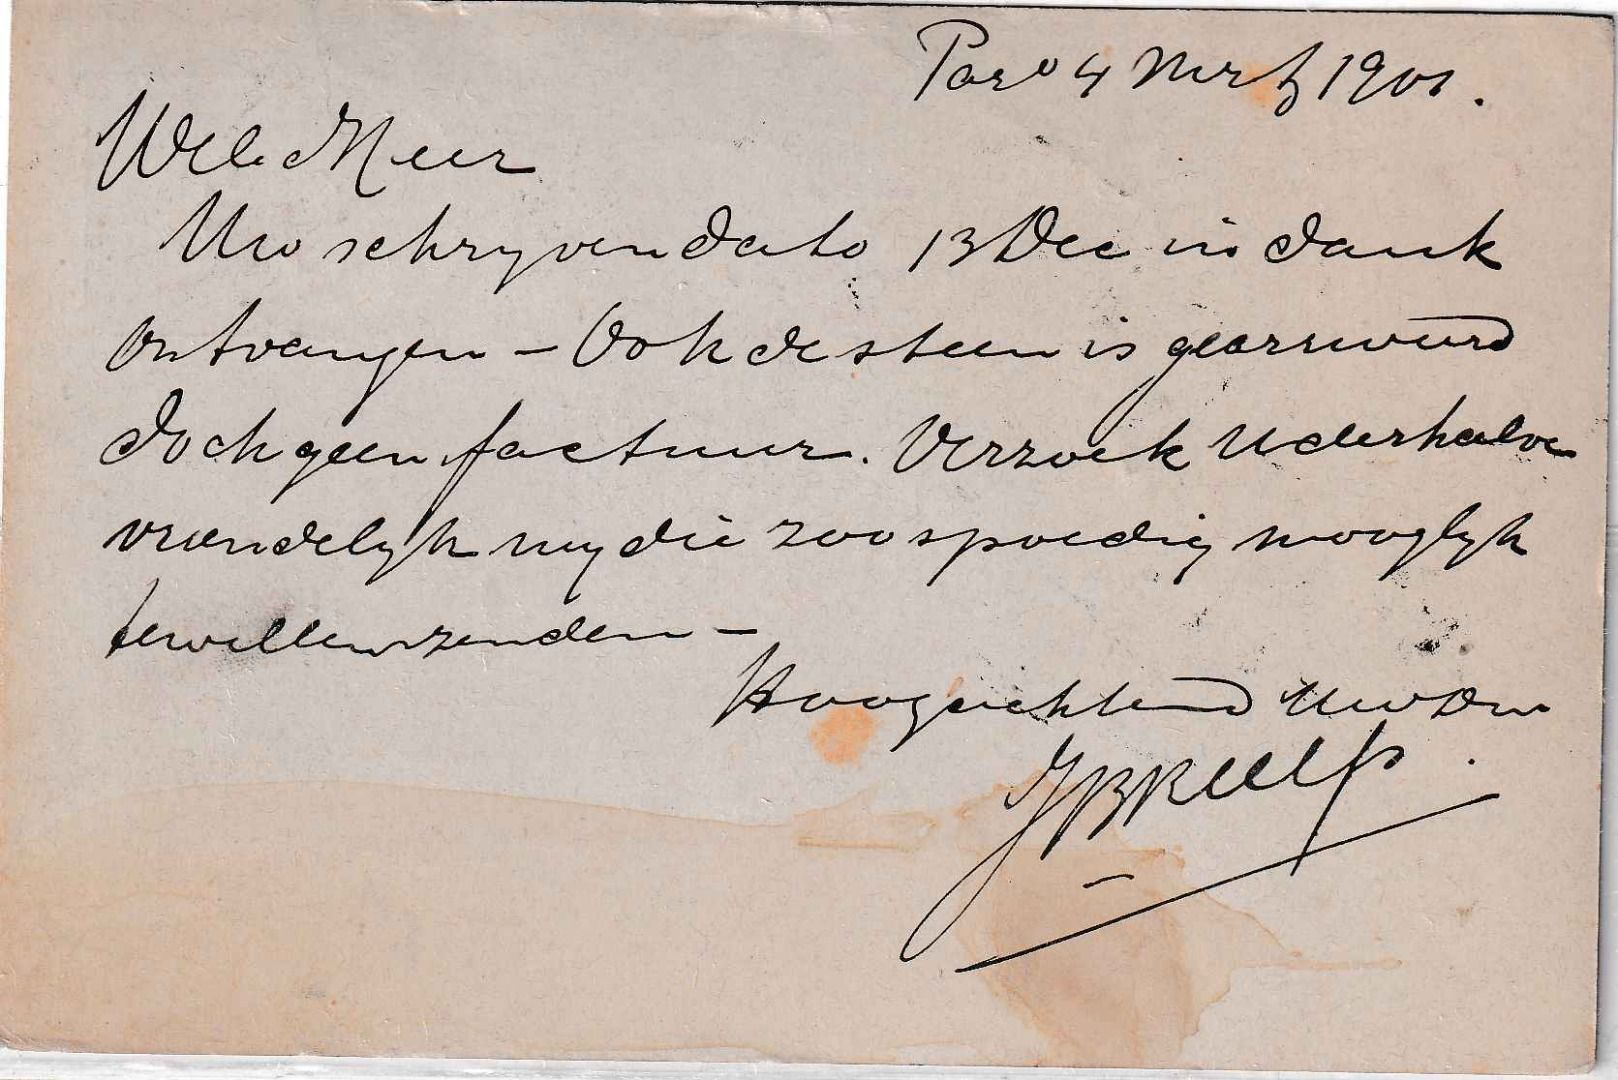 Par° 4 Mrt 1901.
WelEd Heer
Uw schryven dato 13 Dec in dank
ontvangen – Ook de steen is gearriveerd
doch geen factuur. Verzoek U derhalve
vriendelyk my die zoo spoedig mooglyk
te willen zenden –
Hoogachtend Uw Dw